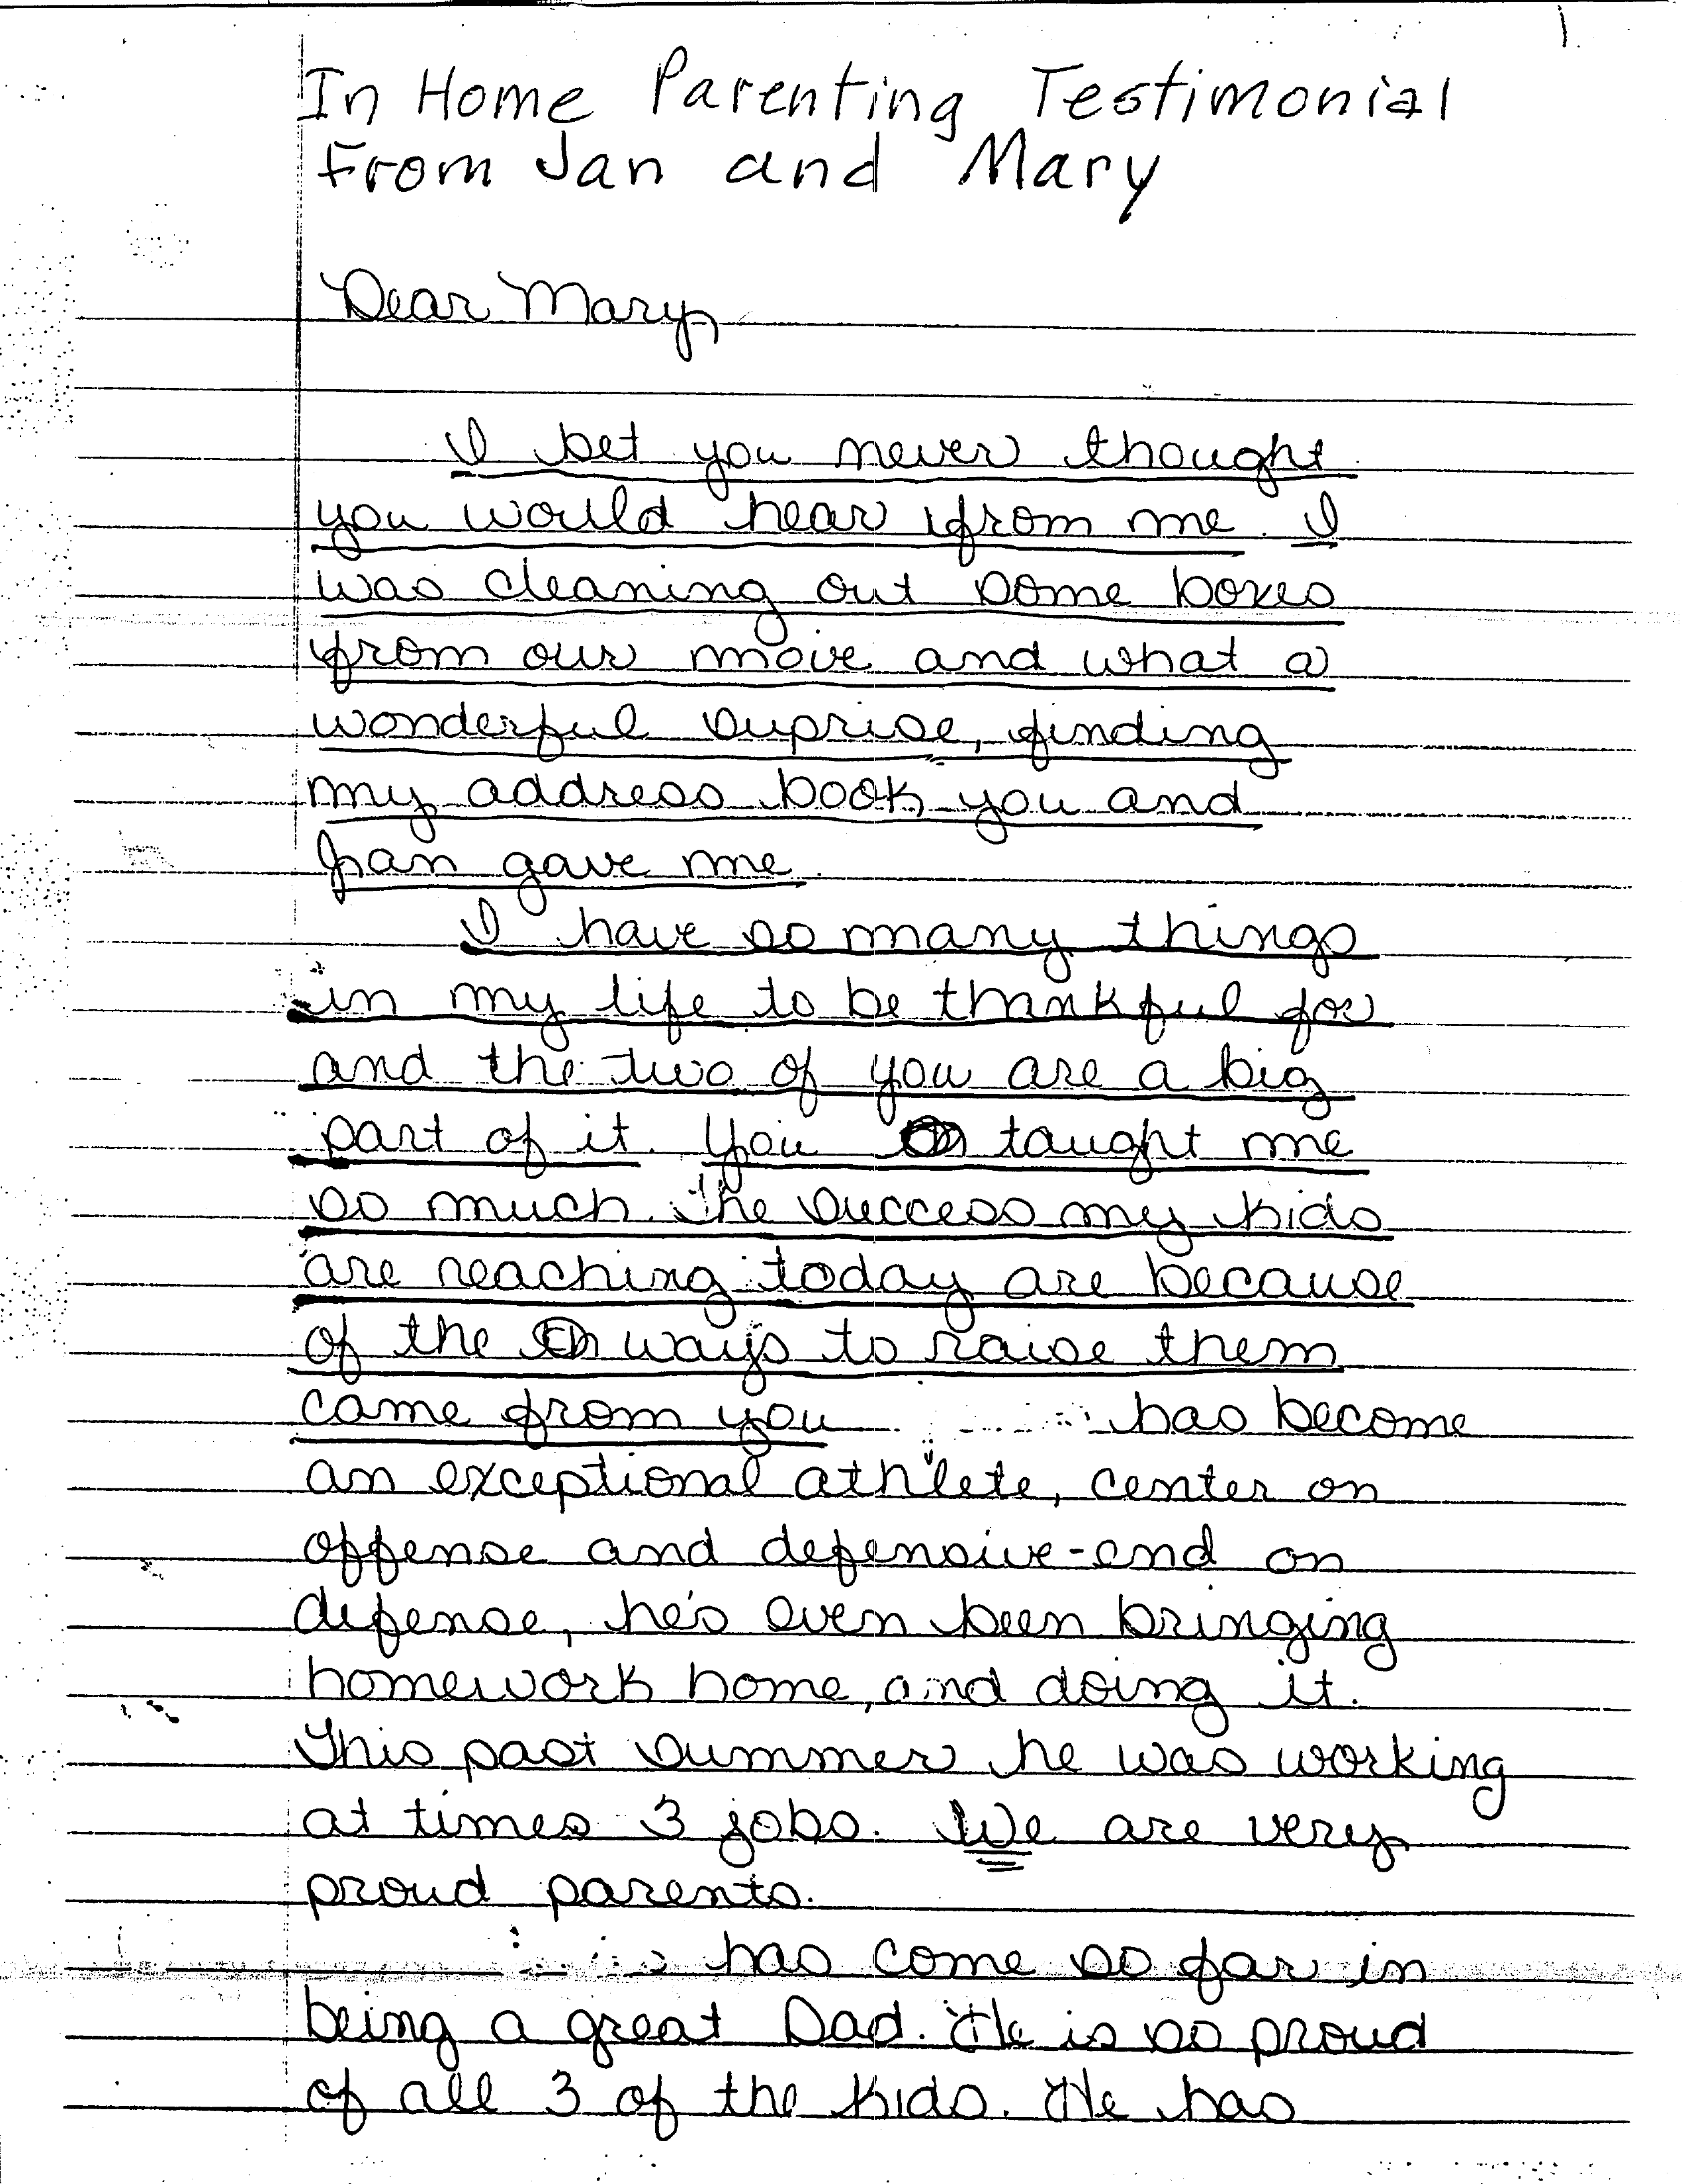 1.
In Home Parenting Testimonial
From Jan and Mary
Dear Mary,
I bet you never thought
you would hear from me. I
was cleaning out some boxes
from our move and what a
wonderful suprise, finding
my address book you and
Jan gave me.
I have so many things
in my life to be thankful for
and the two of you are a big
part of it. You taught me
so much. The success my kids
are reaching today are because
of the ways to raise them
came from you has become
an exceptional athlete, center on
offense and defensive-end on
defense, he's even been bringing
homework home, and doing it.
This past summer he was working
at times 3 jobs. We are very
proud parents.
has come so far in
being a great Dad. He is so proud
of all 3 of the kids. He has